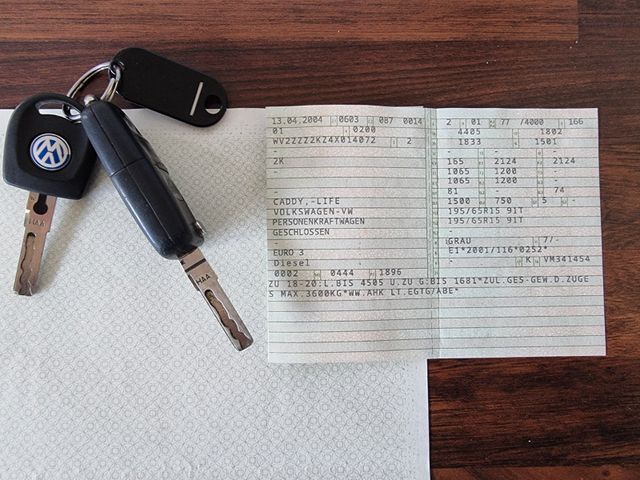 VW
HAA
HAA
13.04.2004 0603 087 0014
01 0200
WV2ZZZ2KZ4X014072 2
-
2K
-
-
CADDY,-LIFE
VOLKSWAGEN-VW
PERSONENKRAFTWAGEN
GESCHLOSSEN
-
EURO 3
Diesel
0002 0444 1896
2 01 77 /4000 166
4405 1802
1833 1501
- -
165 2124 2124
1065 1200 -
1065 1200 -
81 - 74
1500 750 5 -
195/65R15 91T
195/65R15 91T
-
-
GRAU 77-
E1*2001/116*0252*
- K VM341454
ZU 18-20:L.BIS 4505 U.ZU G:BIS 1681*ZUL.GES-GEW.D.ZUGE
S MAX.3600KG*WW.AHK LT.EGTG/ABE*